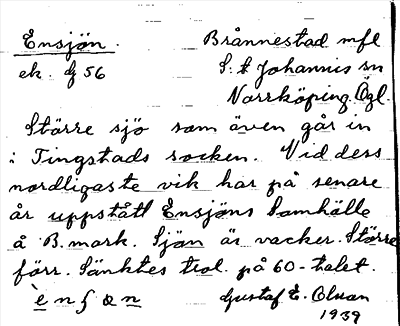 Ensjön. Brånnestad mfl
ek. fg 56 S:t Johannis sn
Norrköping Ögl.
Större sjö som även går in
i Tingstads socken. Vid dess
nordligaste vik har på senare
år uppstått Ensjöns Samhälle
å B. mark. Sjön är vacker. Större
förr. Sänktes trol. på 60-talet.
Gustaf E. Olsson
1939